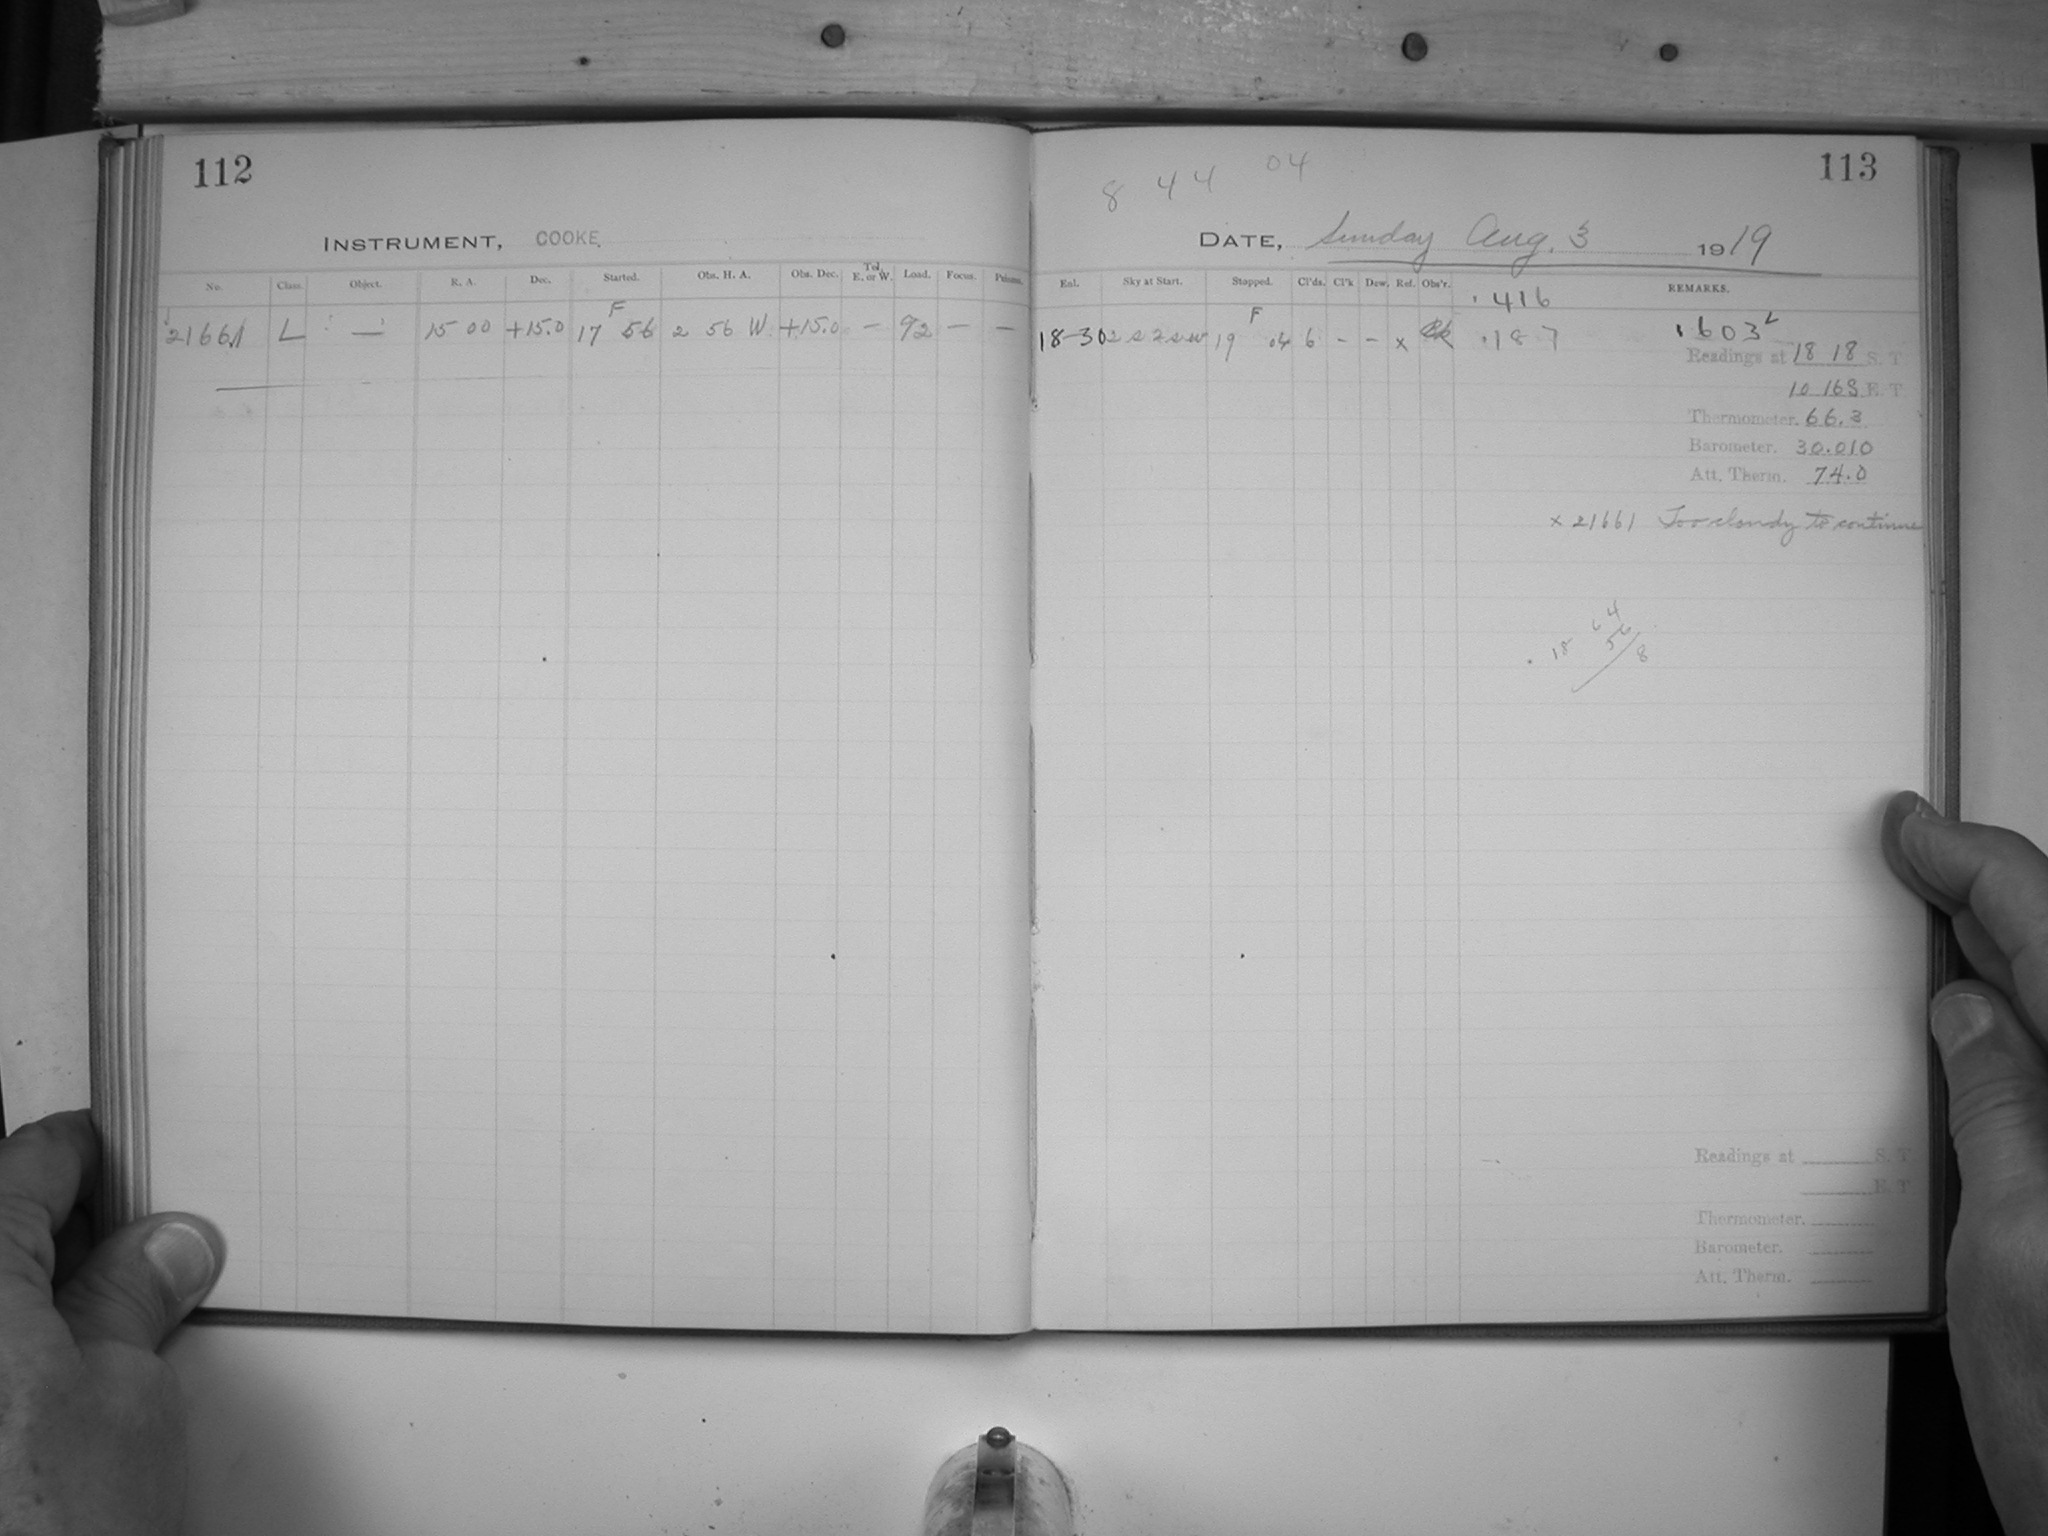 112
INSTRUMENT, COOKE
No. Class. Object. R. A. Dec. Started. Obs. H. A. Obs. Dec. Tel. E. or W. Load. Focus. Prisms.
21661 L — 15 00 +15.0 17 F 56 2 56 W +15.0 — 92 — —
8 44 04
113
DATE, Sunday Aug. 3 1919
Exl. Sky at Start. Stopped. Cl'ds. Cl'k Dew. Ref. Obs'r. REMARKS.
.416
18-30 19 F 04 6 - - x .187 .603
Readings at 18 18 S. T
10 16 E. T
Thermometer. 66.3
Barometer. 30.010
Att. Therm. 74.0
x 21661 Too cloudy to continue
64
18 56
8
Readings at S. T
E. T
Thermometer.
Barometer.
Att. Therm.